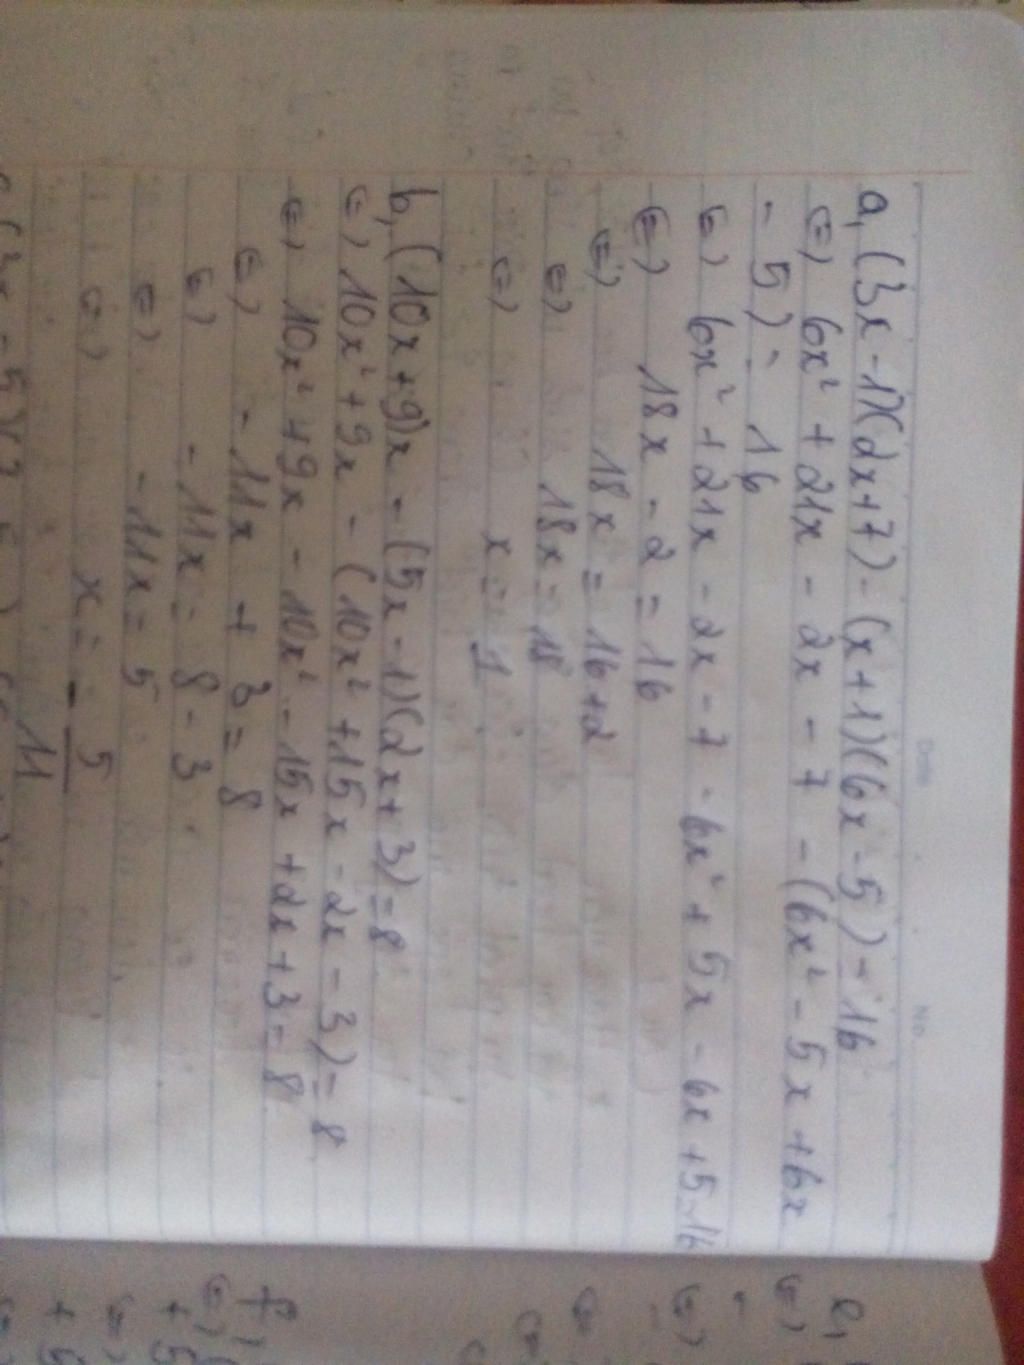 Date No.
a, (3x - 1)(2x + 7) - (x + 1)(6x - 5) = 16
(=) 6x² + 21x - 2x - 7 - (6x² - 5x + 6x
- 5) = 16
(=) 6x² + 21x - 2x - 7 - 6x² + 5x - 6x + 5 = 16
(=) 18x - 2 = 16
(=) 18x = 16 + 2
(=) 18x = 18
(=) x = 1
b, (10x + 9)x - (5x - 1)(2x + 3) = 8
(=) 10x² + 9x - (10x² + 15x - 2x - 3) = 8
(=) 10x² + 9x - 10x² - 15x + 2x + 3 = 8
(=) - 11x + 3 = 8
(=) - 11x = 8 - 3
(=) - 11x = 5
(=) x = - 5/11
e,
(=)
-
(=)
f,
(=)
+ 5